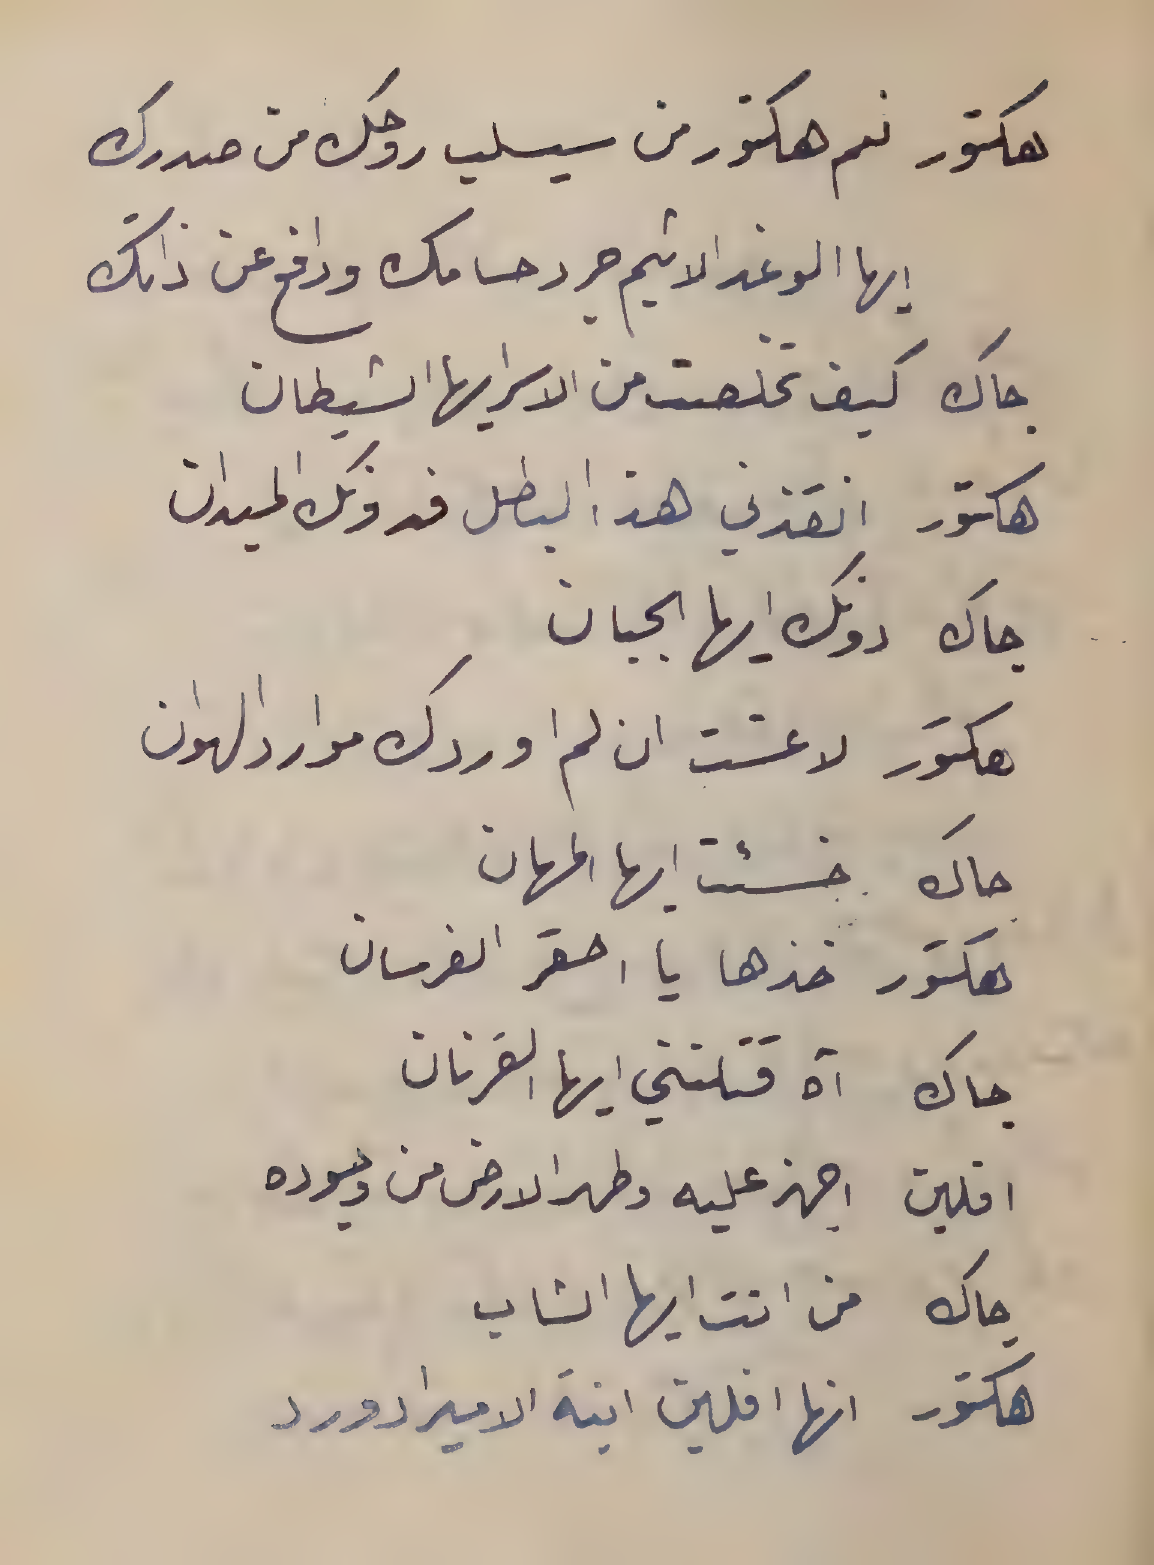 هكتور نعم هكتور من سيسلب روحك من صدرك
ايها الوغد الاثيم جرد حسامك ودافع عن ذاتك
جاك كيف تخلصت من الاسر ايها الشيطان
هكتور انقذني هذا البطل فدونك الميدان
جاك دونك ايها الجبان
هكتور لا عشت ان لم اوردك موارد الهوان
جاك خسئت ايها المهان
هكتور خذها يا احقر الفرسان
جاك آه قتلتني ايها القرنان
افلين اجهز عليه وطهر الارض من وجوده
جاك من انت ايها الشاب
هكتور انها افلين ابنة الامير ادورد